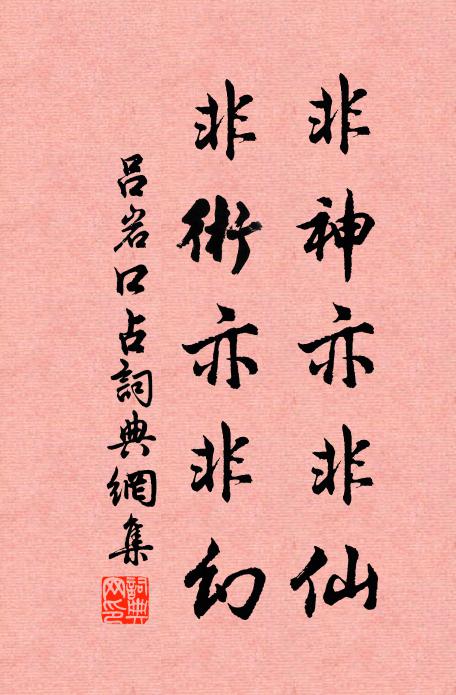 非神亦非仙
非術亦非幻
吕岩口占詞典網集
詞典网印